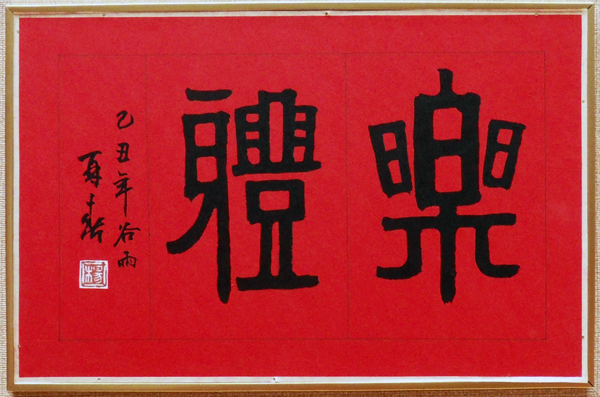 樂禮
乙丑年谷雨